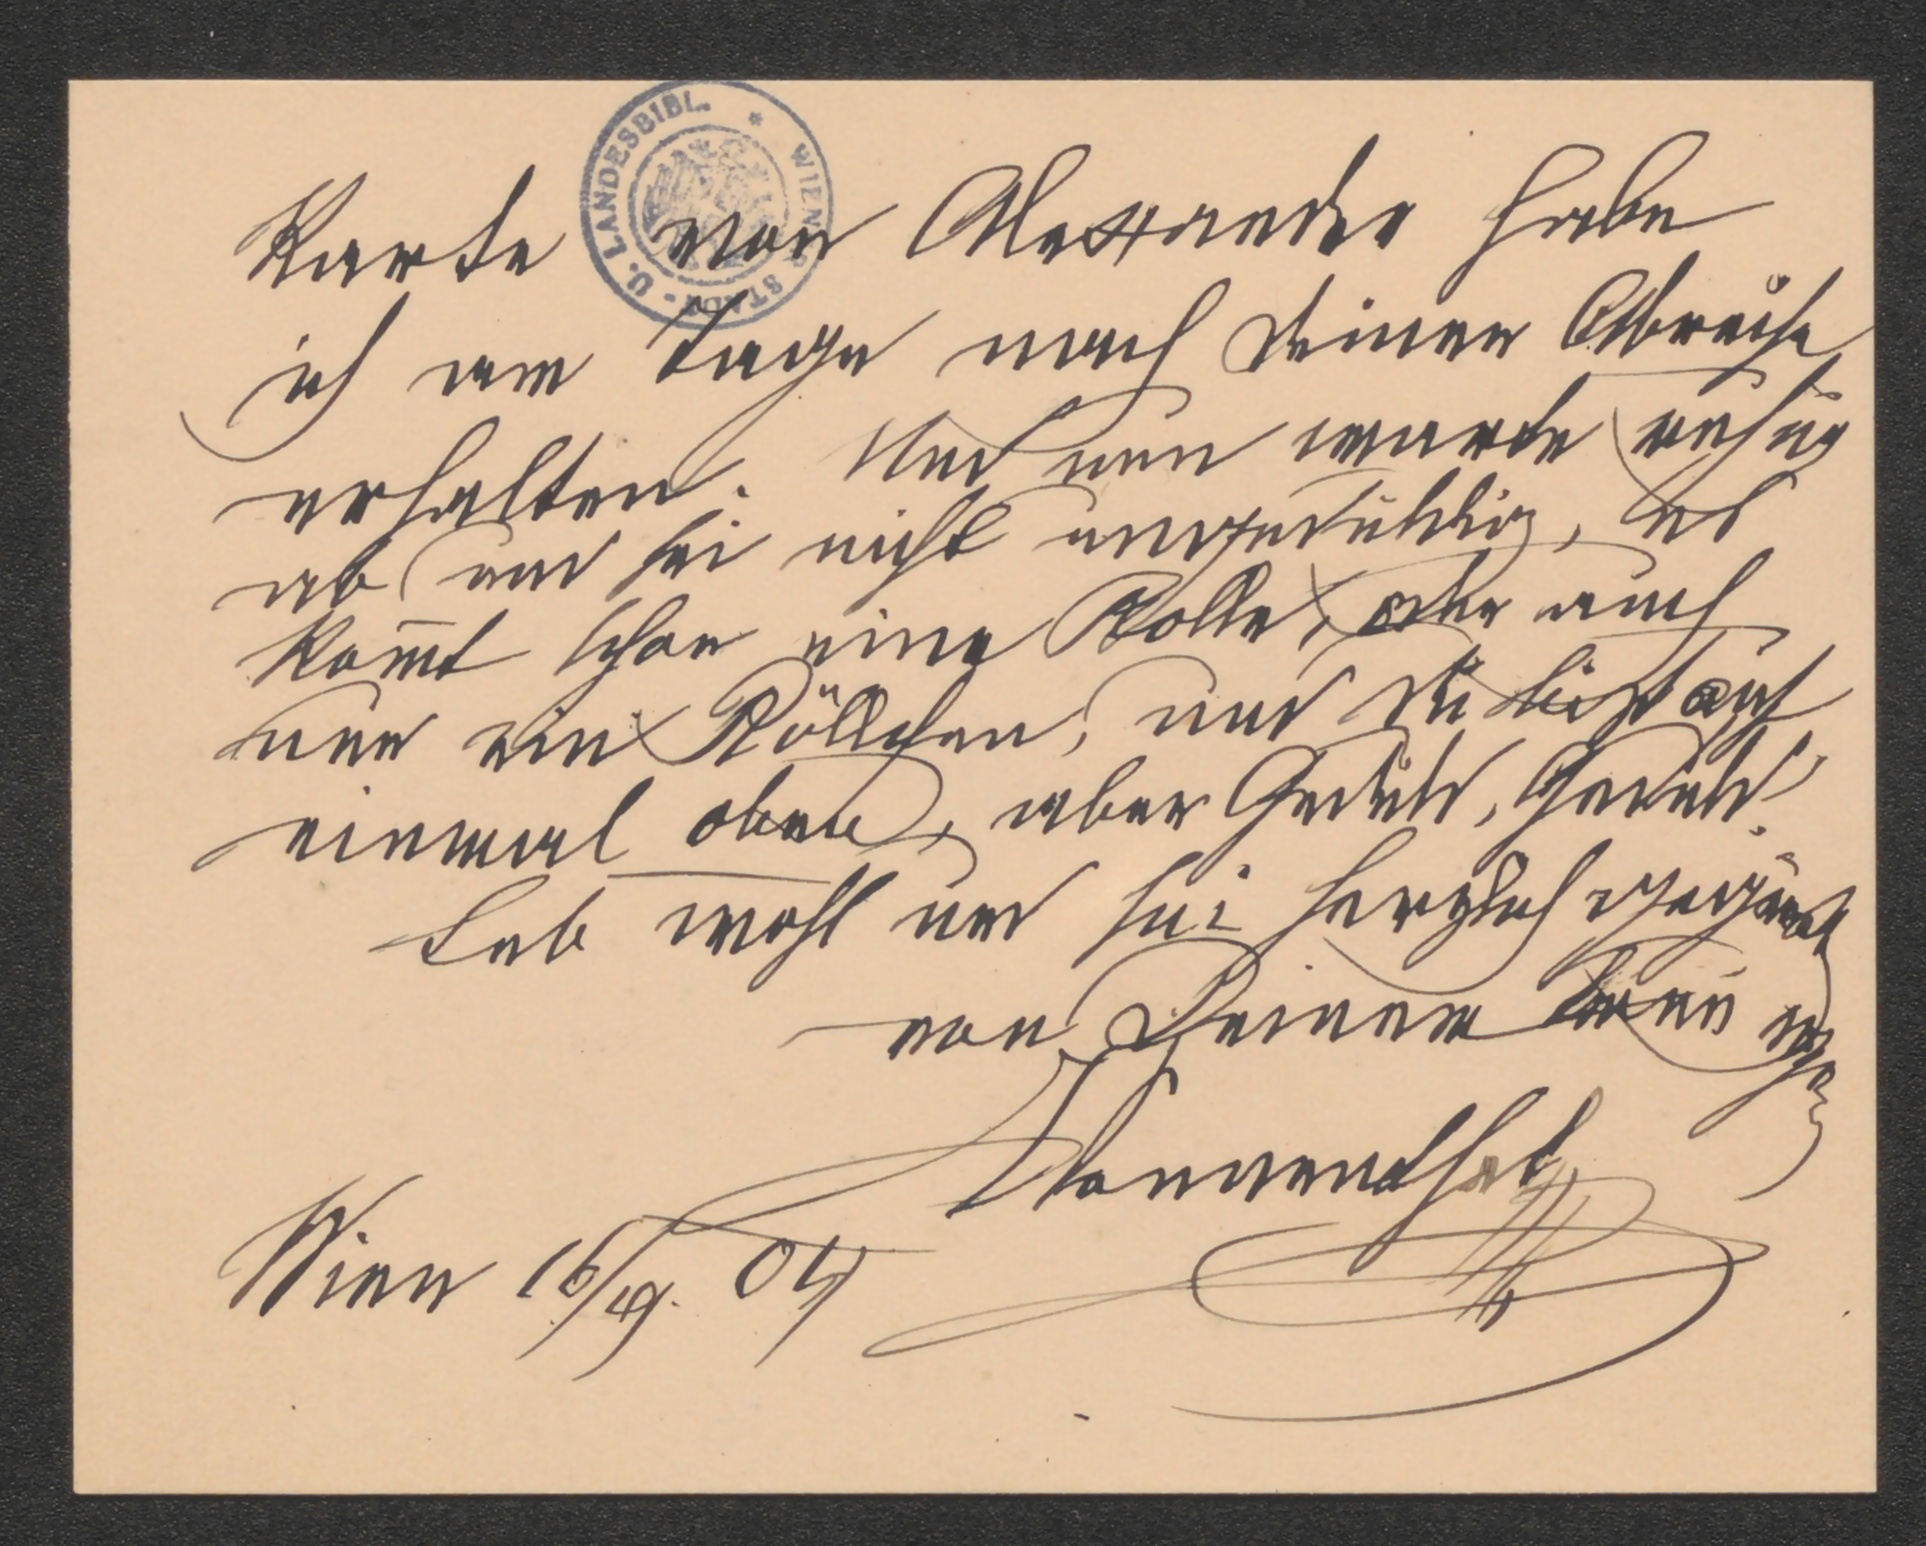 U. LANDESBIBL. * WIENER STADT-
Karte von Alexander habe
ich am Tage nach Deiner Abreise
erhalten. Und nun warte ruhig
ab und sei nicht ungeduldig, es
kom̅t schon eine Rolle, oder auch
nur ein Röllchen, und Du bist auf
einmal oben, aber Geduld, Geduld!
Leb wohl und sei herzlich gegrüßt
von Deinem
Sonnenthal
Wien 16/4. 04